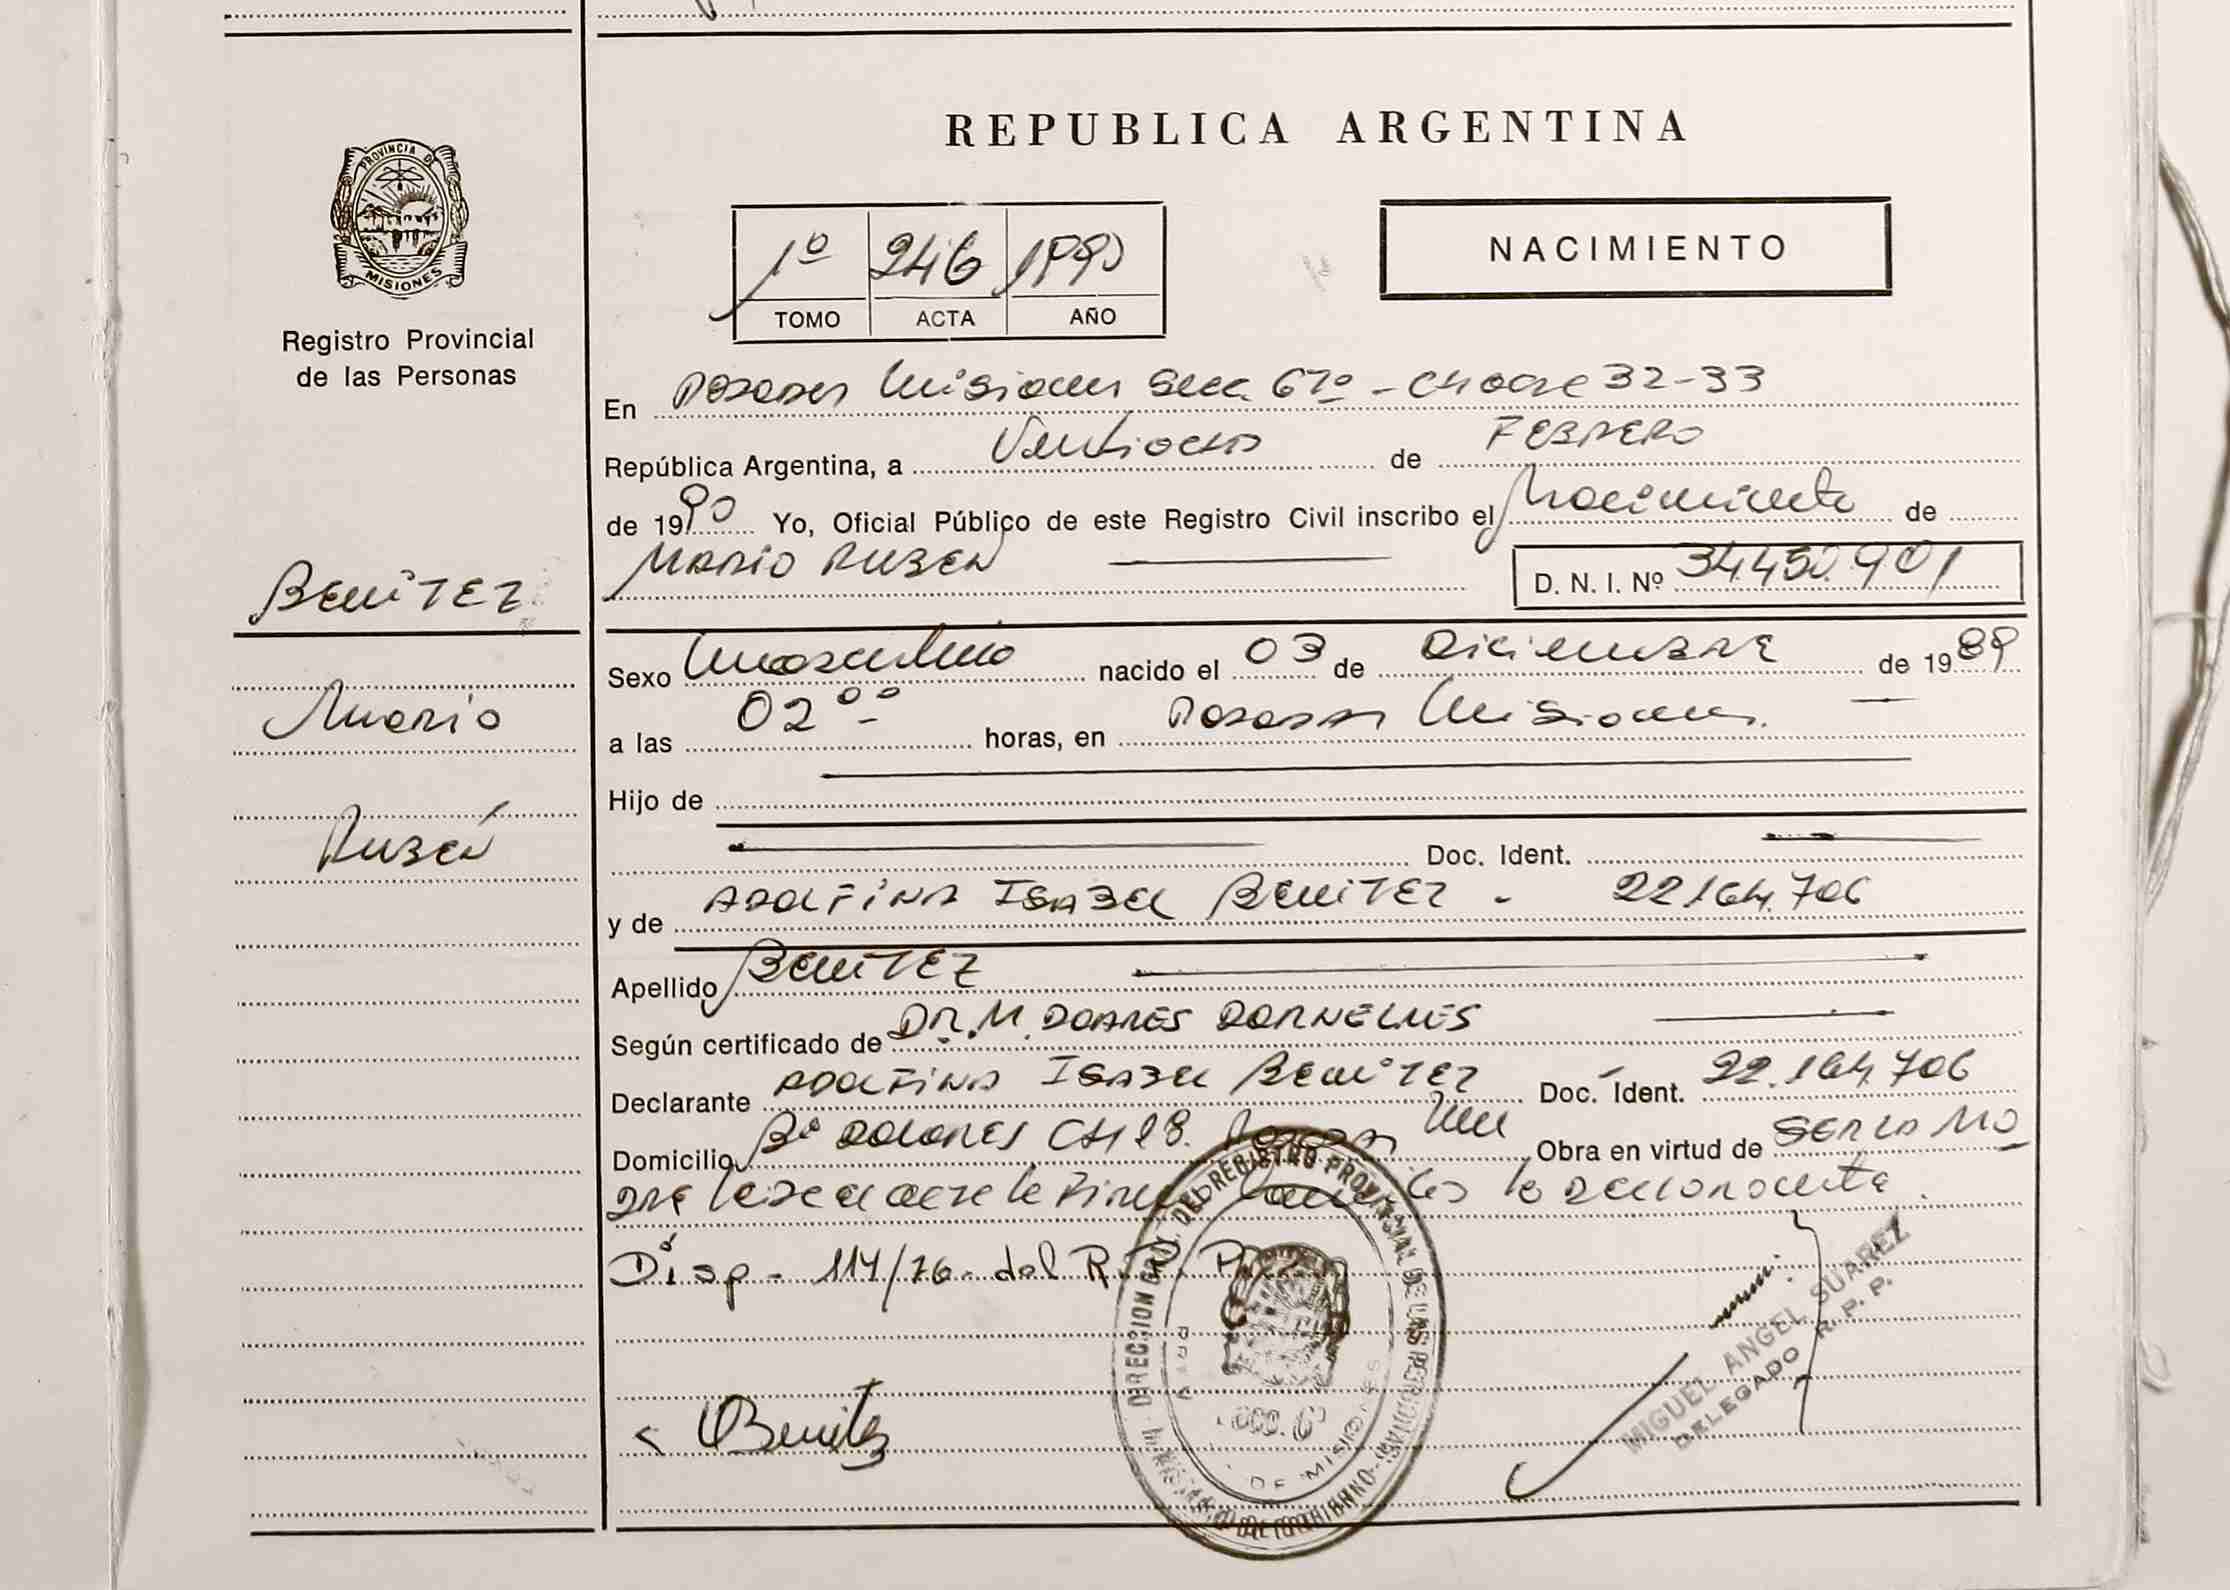 REPUBLICA ARGENTINA
PROVINCIA DE
MISIONES
Registro Provincial
de las Personas
1º 246 1990
TOMO ACTA AÑO
NACIMIENTO
En Posadas Misiones Secc. 6ta - Chacra 32-33
República Argentina, a Ventiocho de FEBRERO
de 1990 Yo, Oficial Público de este Registro Civil inscribo el Nacimiento de
MARIO RUBEN D. N. I. Nº 34.450.901
BENITEZ
Mario
Rubén
Sexo Masculino nacido el 03 de Diciembre de 1989
a las 02 ºº horas, en Posadas Misiones.
Hijo de
Doc. Ident.
y de ADOLFINA ISABEL BENITEZ - 22164.706
Apellido BENITEZ
Según certificado de DR. M. DORNELLES
Declarante ADOLFINA ISABEL BENITEZ Doc. Ident. 22.164.706
Domicilio Bº DOLORES CH 28. Posadas Mnes Obra en virtud de SER LA MADRE
la reconociente.
Disp. 114/76 - del R. R. P.
Benitez
DIRECCION GRAL. DEL REGISTRO PROVINCIAL DE LAS PERSONAS
DE MISIONES
MIGUEL ANGEL SUAREZ
DELEGADO R. P. P.